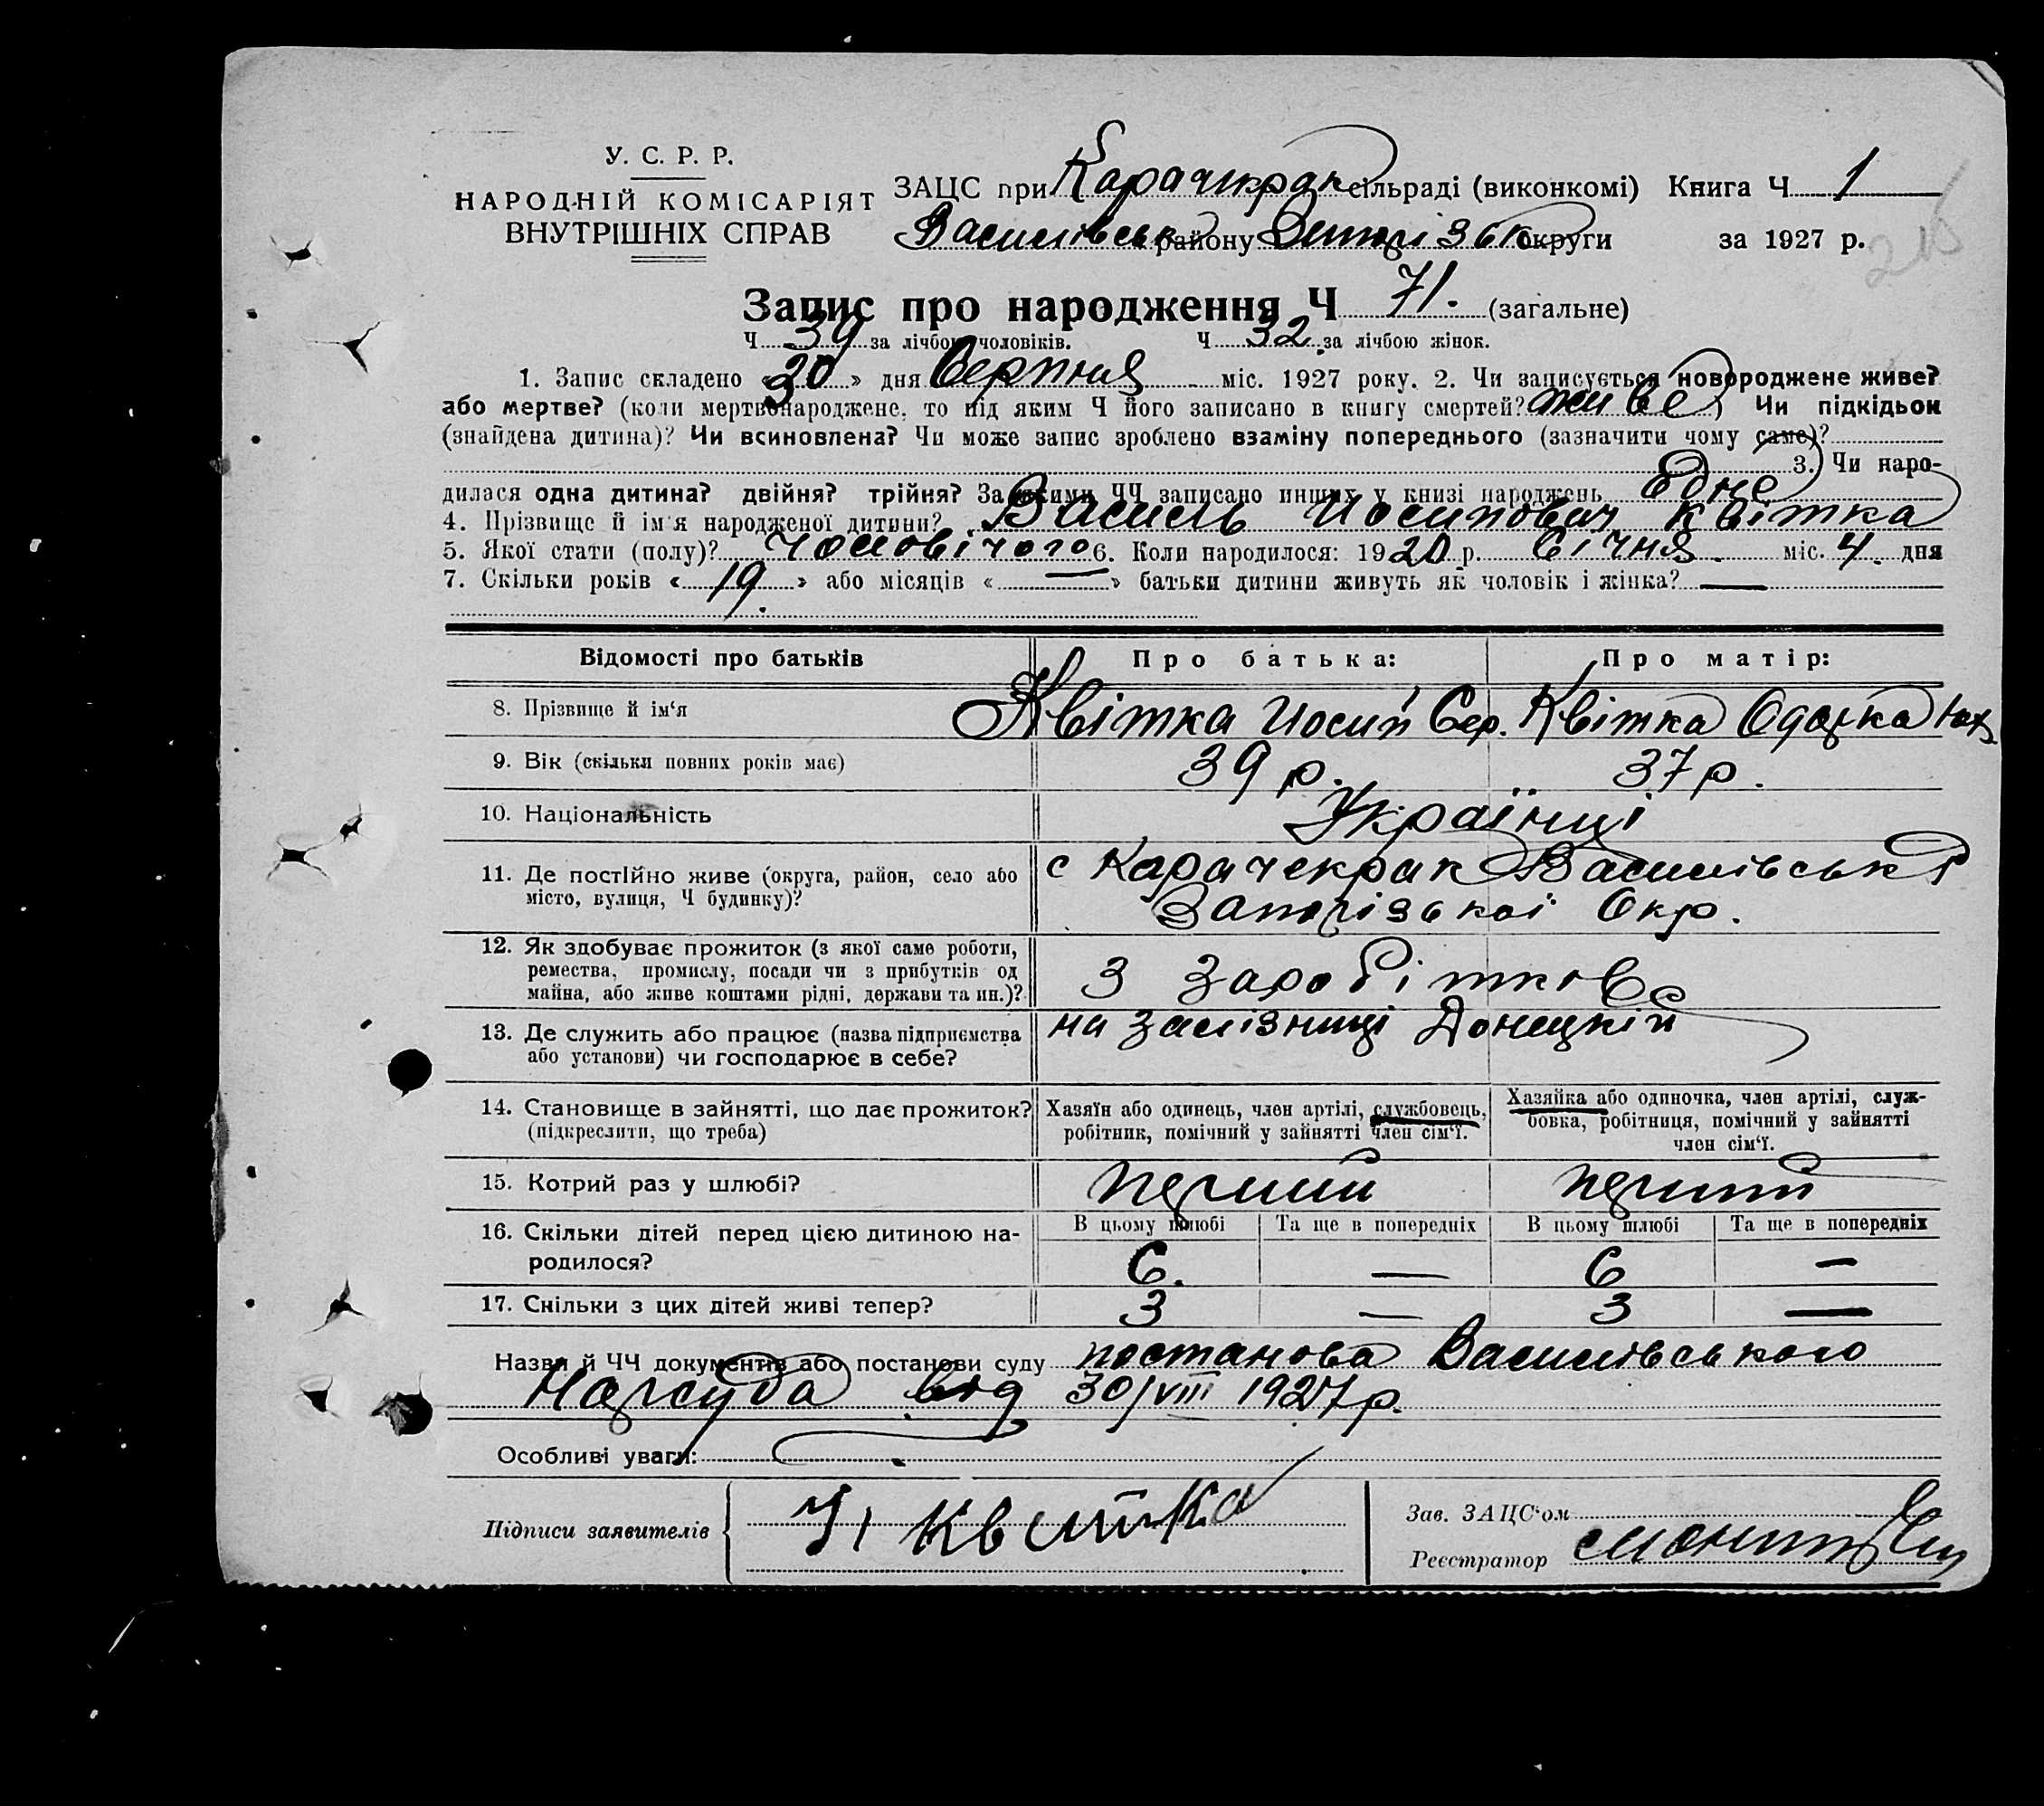 У. С. Р. Р.
НАРОДНІЙ КОМІСАРІЯТ
ВНУТРІШНІХ СПРАВ
ЗАЦС при Карачекрак сільраді (виконкомі) Книга Ч 1
Василівськ району Запорізьк округи за 1927 р.
Запис про народження Ч 71. (загальне)
Ч 39 за лічбою чоловіків. Ч 32 за лічбою жінок.
1. Запис складено «30» дня Серпня міс. 1927 року. 2. Чи записується новороджене живе?
або мертве? (коли мертвонароджене, то під яким Ч його записано в книгу смертей? живе) Чи підкідьок
(знайдена дитина)? Чи всиновлена? Чи може запис зроблено взаміну попереднього (зазначити чому саме)?
3. Чи наро-
дилася одна дитина? двійня? трійня? За якими ЧЧ записано инших у книзі народжень Одне
4. Прізвище й ім'я народженої дитини? Василь Иосипович Квітка
5. Якої стати (полу)? чоловічого 6. Коли народилося: 1920 р. Січня міс. 4 дня
7. Скільки років «19» або місяців «—» батьки дитини живуть як чоловік і жінка? —
Відомості про батьків Про батька: Про матір:
8. Прізвище й ім‘я Квітка Иосип Сер. Квітка Одарка
9. Вік (скільки повних років має) 39 р. 37 р.
10. Національність Українці
11. Де постійно живе (округа, район, село або
місто, вулиця, Ч будинку)?
с Карачекрак Василівськ р
Запорізької Окр.
12. Як здобуває прожиток (з якої саме роботи,
ремества, промислу, посади чи з прибутків од
майна, або живе коштами рідні, держави та ин.)?
З заробітков
13. Де служить або працює (назва підприємства
або установи) чи господарює в себе?
на залізниці Донецкій
14. Становище в зайнятті, що дає прожиток?
(підкреслити, що треба)
Хазяїн або одинець, член артілі, службовець,
робітник, помічний у зайнятті член сім‘ї.
Хазяйка або одиночка, член артілі, служ-
бовка, робітниця, помічний у зайнятті
член сім‘ї.
15. Котрий раз у шлюбі? перший перший
16. Скільки дітей перед цією дитиною на-
родилося?
В цьому шлюбі Та ще в попередніх В цьому шлюбі Та ще в попередніх
6. — 6 —
17. Скільки з цих дітей живі тепер? 3 — 3 —
Назви й ЧЧ документів або постанови суду постанова Василівського
Нарсуда від 30/VIII 1927 р.
Особливі уваги:
Підписи заявителів
И Квитка
Зав. ЗАЦС‘ом
Реєстратор